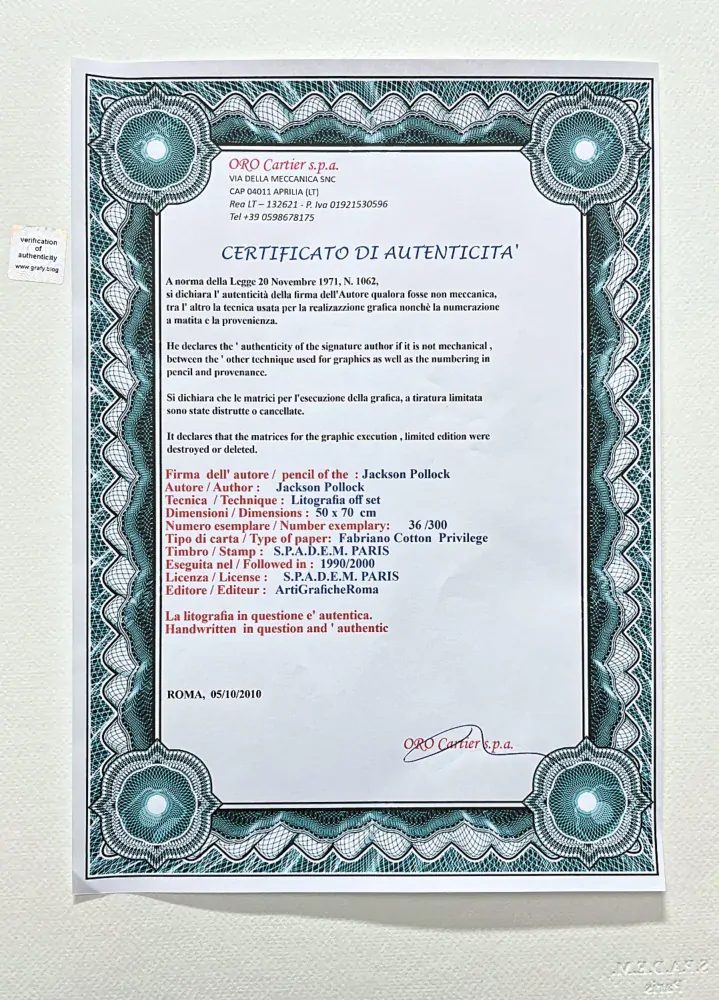 ORO Cartier s.p.a.
VIA DELLA MECCANICA SNC
CAP 04011 APRILIA (LT)
Rea LT – 132621 - P. Iva 01921530596
Tel +39 0598678175
CERTIFICATO DI AUTENTICITA'
verification
of
authenticity
www.grafy.blog
A norma della Legge 20 Novembre 1971, N. 1062,
si dichiara l' autenticità della firma dell'Autore qualora fosse non meccanica,
tra l' altro la tecnica usata per la realizazzione grafica nonchè la numerazione
a matita e la provenienza.
He declares the ' authenticity of the signature author if it is not mechanical ,
between the ' other technique used for graphics as well as the numbering in
pencil and provenance.
Si dichiara che le matrici per l'esecuzione della grafica, a tiratura limitata
sono state distrutte o cancellate.
It declares that the matrices for the graphic execution , limited edition were
destroyed or deleted.
Firma dell' autore / pencil of the : Jackson Pollock
Autore / Author : Jackson Pollock
Tecnica / Technique : Litografia off set
Dimensioni / Dimensions : 50 x 70 cm
Numero esemplare / Number exemplary: 36 /300
Tipo di carta / Type of paper: Fabriano Cotton Privilege
Timbro / Stamp : S.P.A.D.E.M. PARIS
Eseguita nel / Followed in : 1990/2000
Licenza / License : S.P.A.D.E.M. PARIS
Editore / Editeur : ArtiGraficheRoma
La litografia in questione e' autentica.
Handwritten in question and ' authentic
ROMA, 05/10/2010
ORO Cartier s.p.a.
S.P.A.D.E.M.
Paris